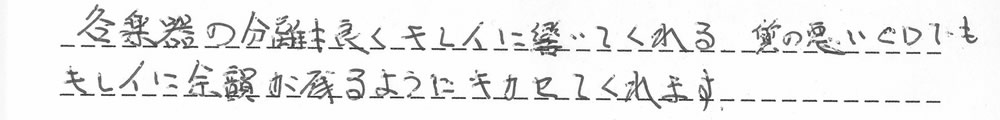 各楽器の分離も良くキレイに響いてくれる 質の悪いCDでも
キレイに余韻が残るようにキカせてくれます